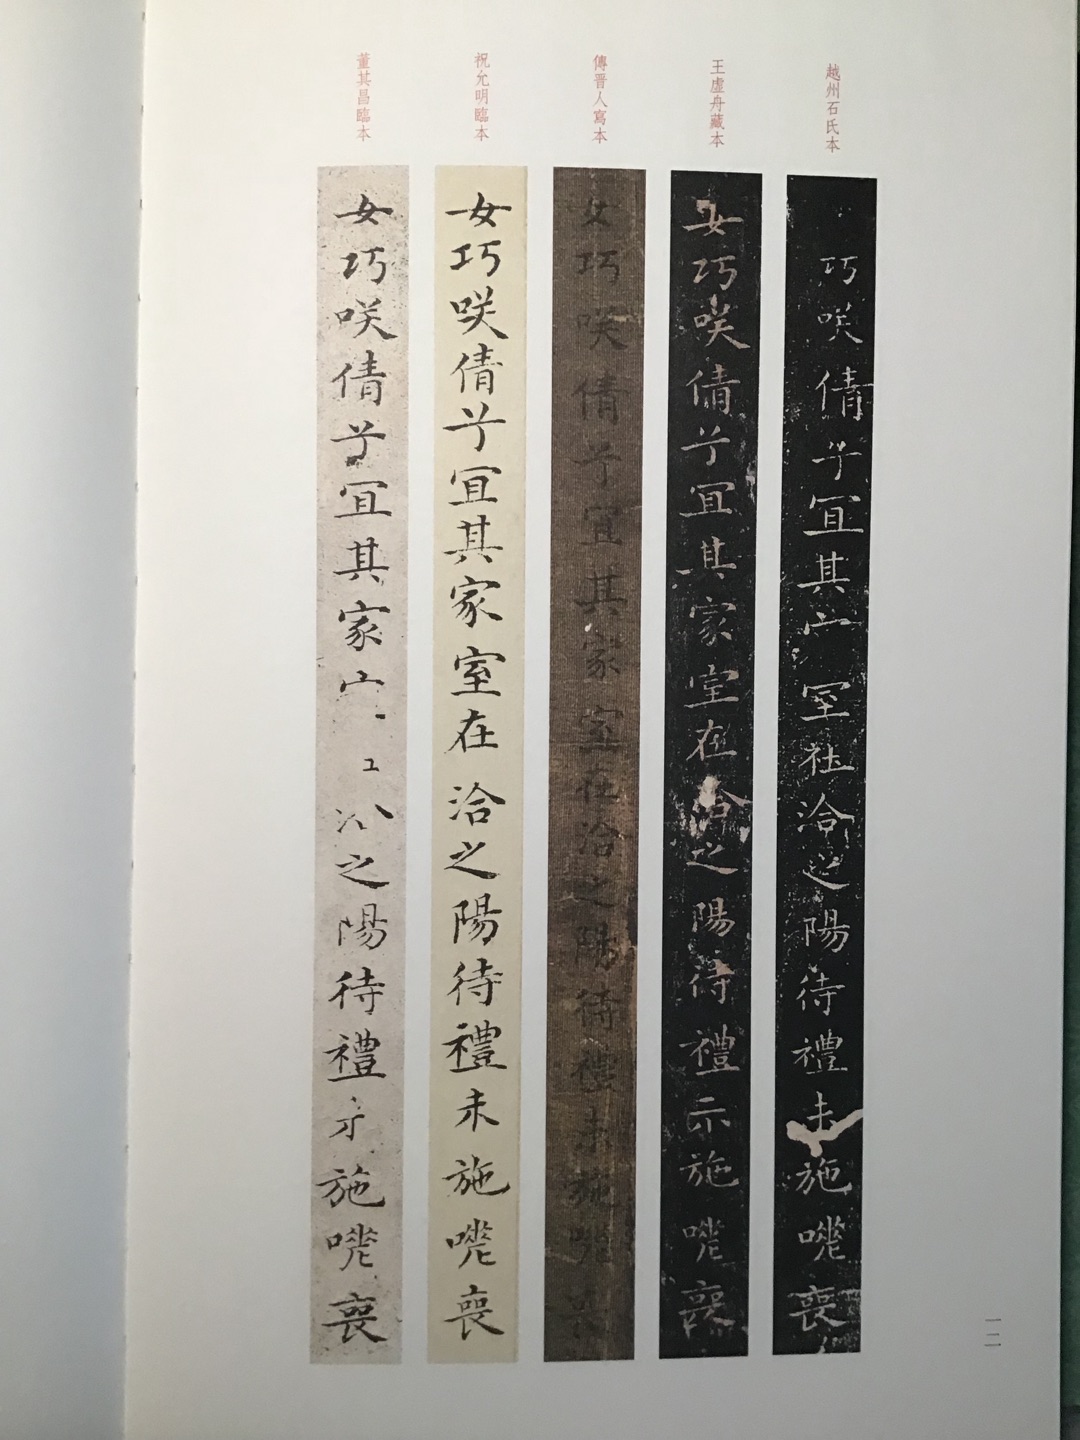 越州石氏本
巧咲倩兮冝其室在洽之陽待禮未施嗟喪
王虛舟藏本
女巧咲倩兮冝其家室在洽之陽待禮示施嗟喪
傳晋人寫本
女巧咲倩兮冝其家室在洽之陽待禮未施嗟喪
祝允明臨本
女巧咲倩兮冝其家室在洽之陽待禮未施嗟喪
董其昌臨本
女巧咲倩兮冝其家之陽待禮施嗟喪
一二